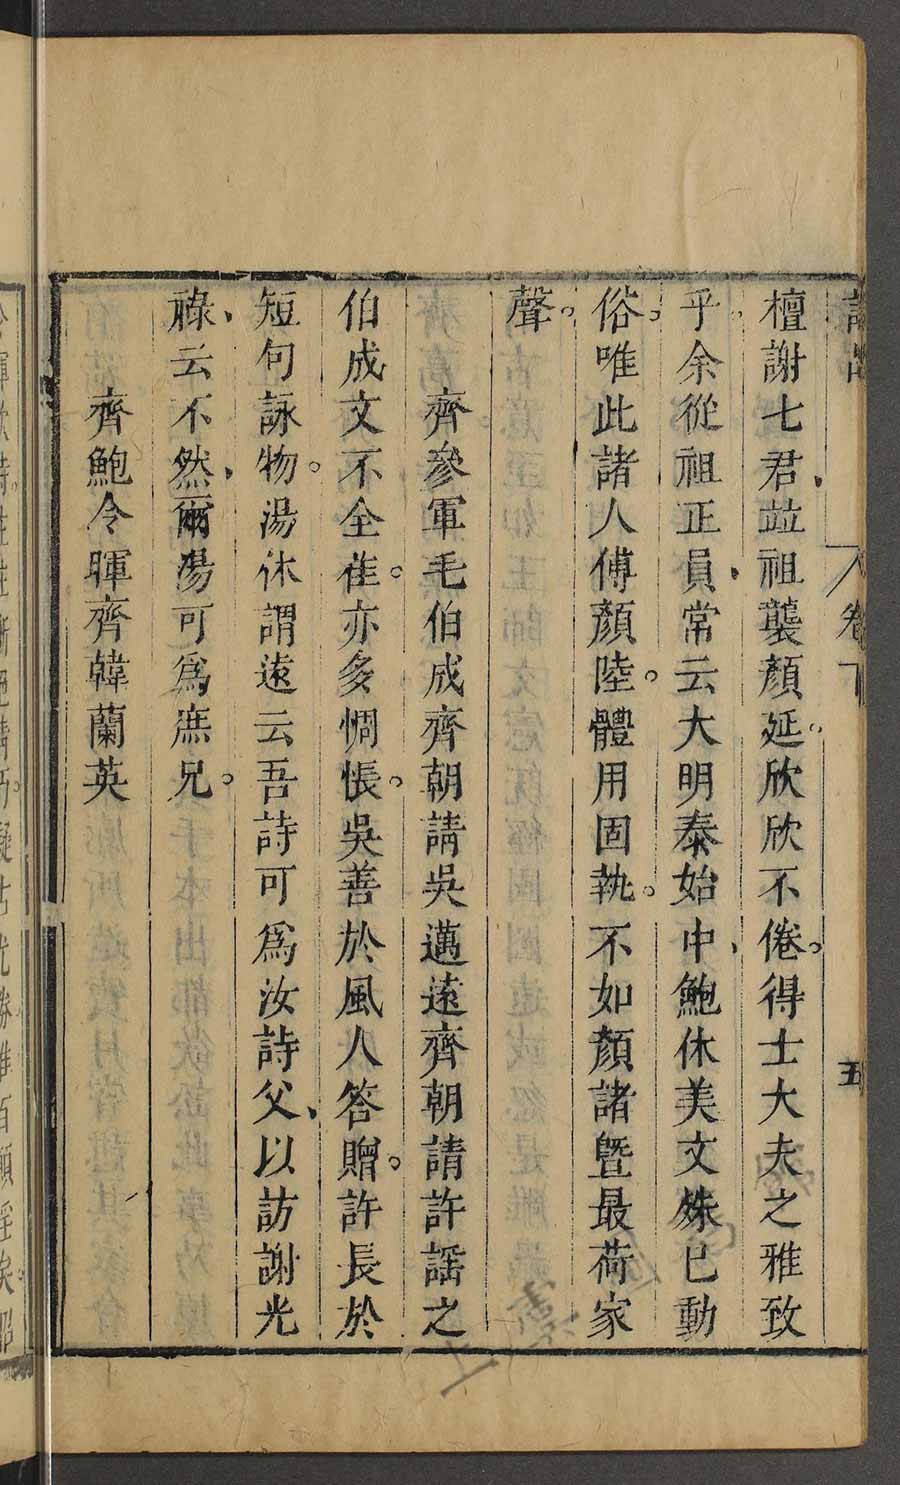 詩品
卷下
五
檀謝七君竝祖襲顏延。欣欣不倦。得士大夫之雅致
乎余從祖正員常云大明泰始中、鮑休美文殊已動
俗。唯此諸人傅顏陸。體用固執。不如顏諸暨最荷家
聲。
齊參軍毛伯成齊朝請吳邁遠齊朝請許謡之
伯成文不全隹。亦多惆悵。吳善於風人答贈。許長於
短句詠物。湯休謂遠云吾詩可爲汝詩父、以訪謝光
祿、云不然、爾湯可爲庶兄。
齊鮑令暉齊韓蘭英